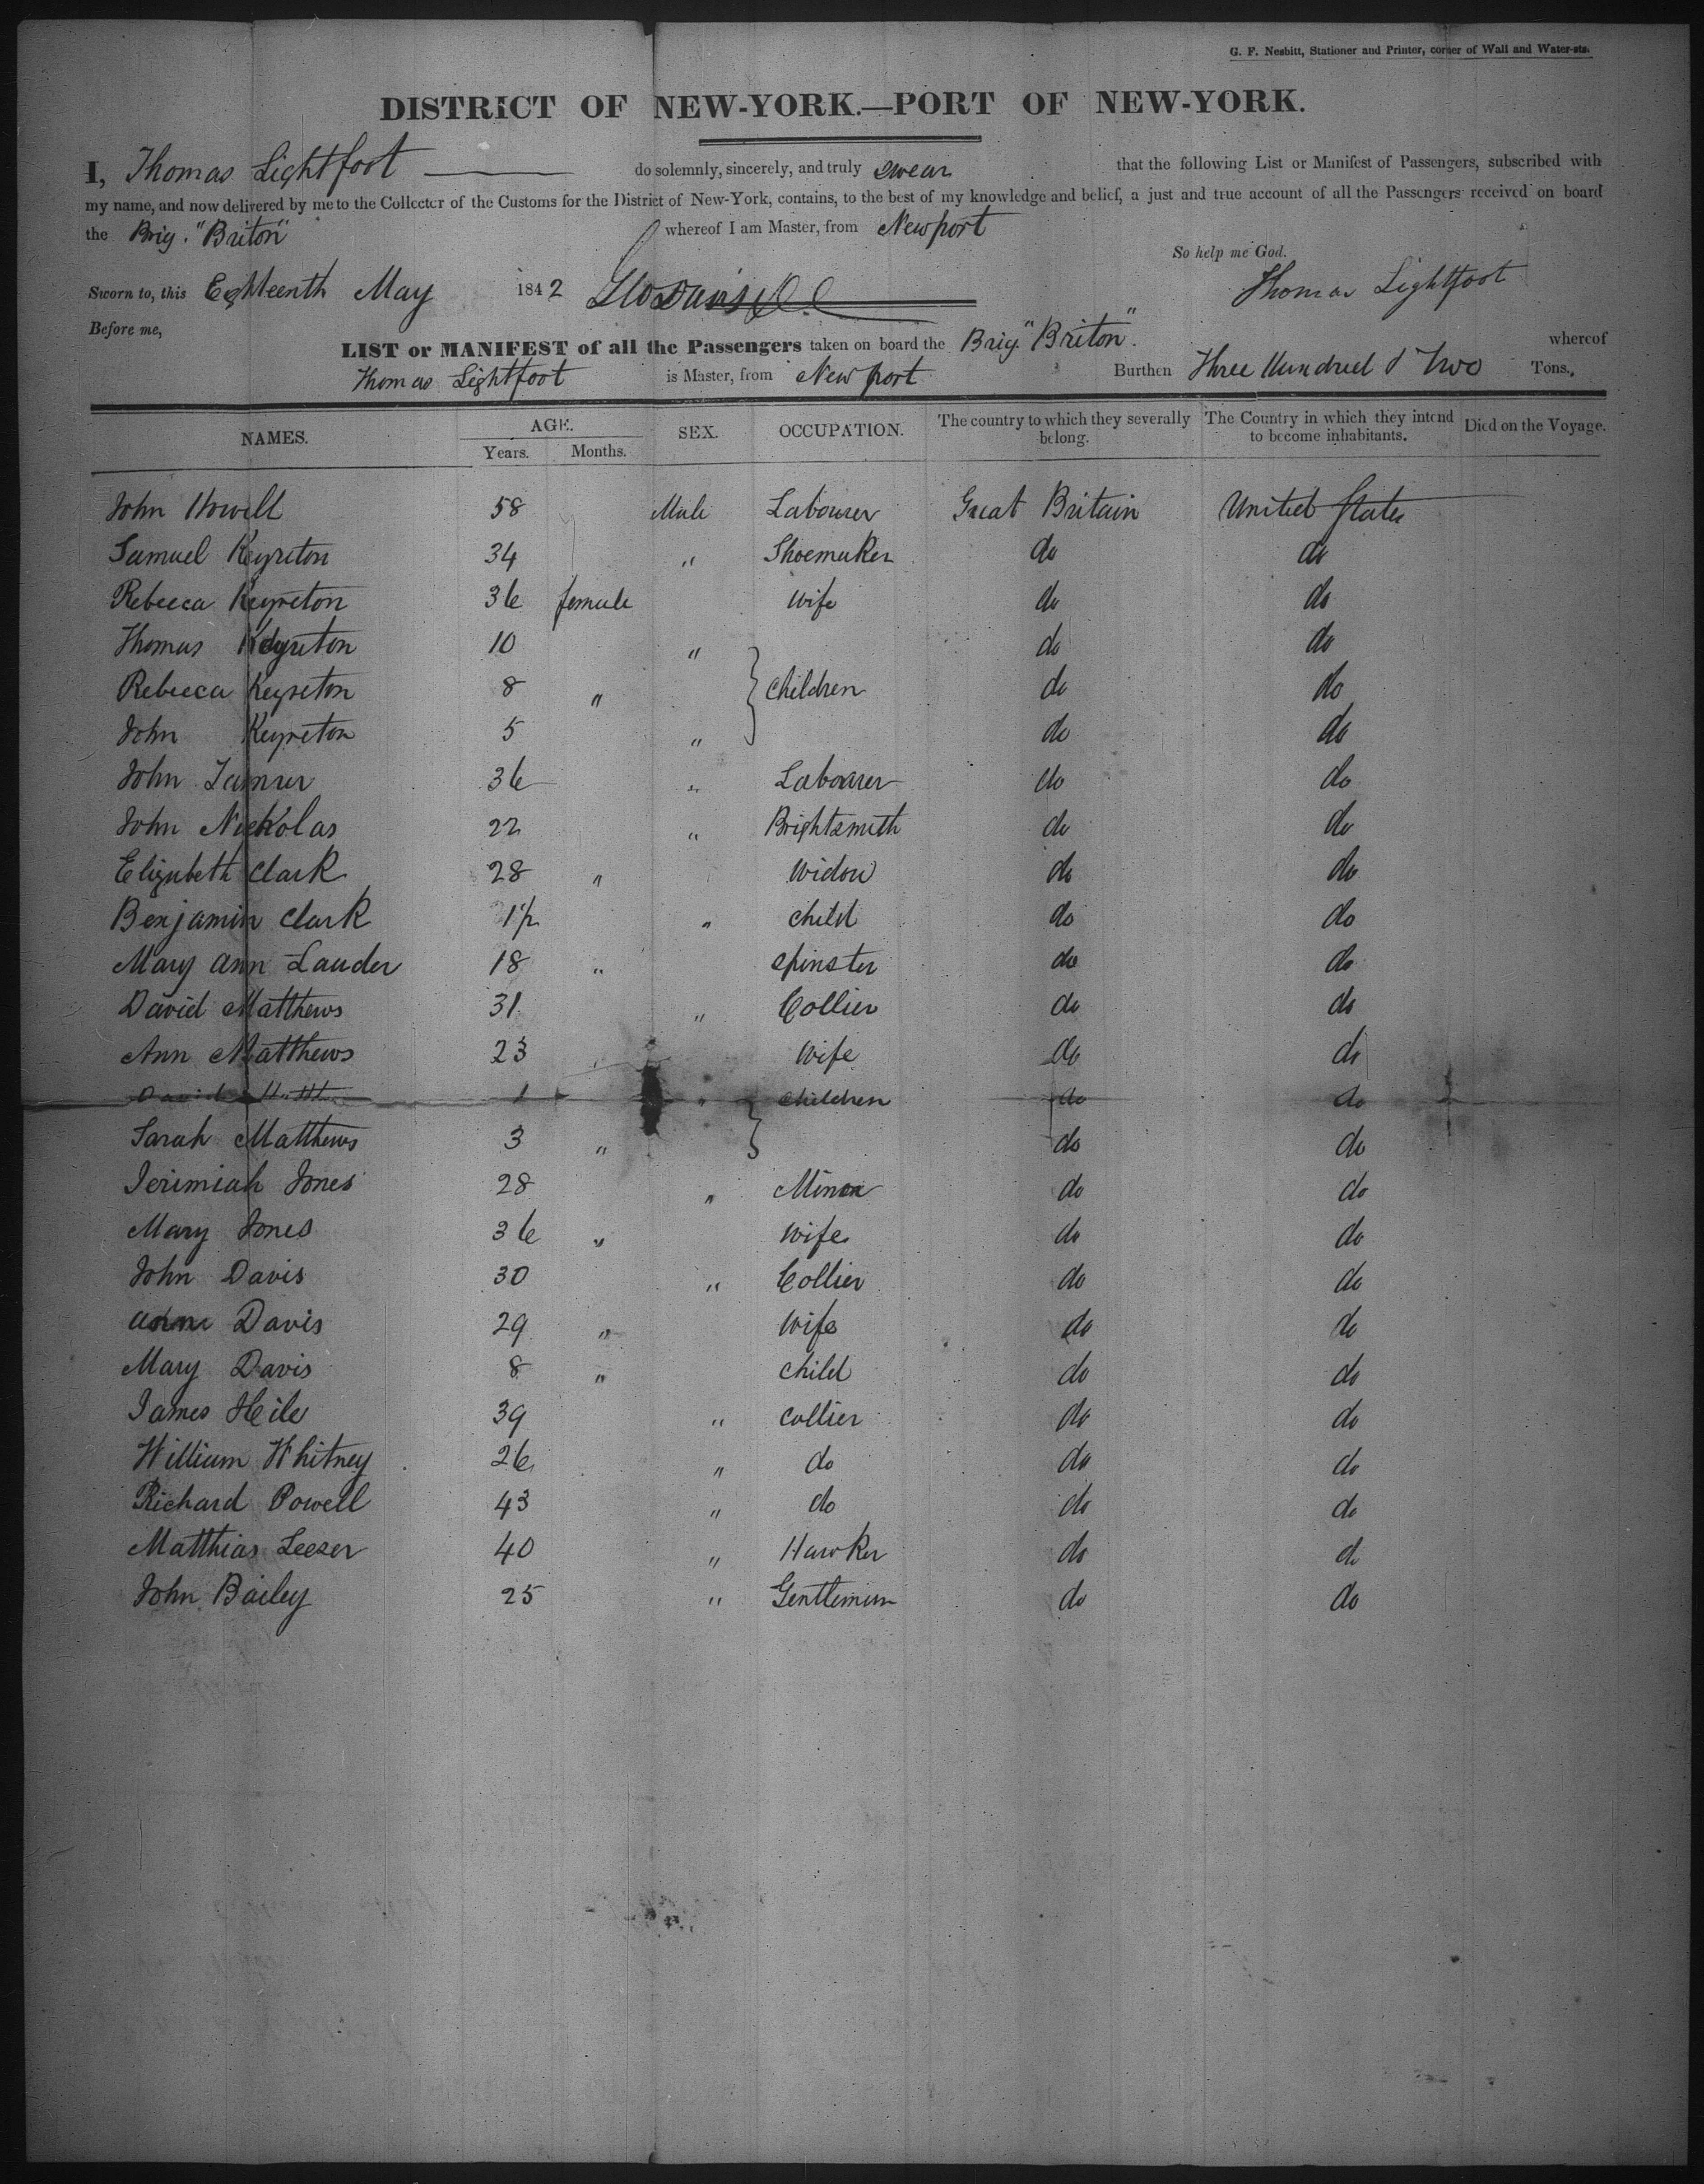 G. F. Nesbitt, Stationer and Printer, corner of Wall and Water-sts.
DISTRICT OF NEW-YORK.—PORT OF NEW-YORK.
I, Thomas Lightfoot do solemnly, sincerely, and truly swear that the following List or Manifest of Passengers, subscribed with
my name, and now delivered by me to the Collecter of the Customs for the District of New-York, contains, to the best of my knowledge and belief, a just and true account of all the Passengers received on board
the Brig. "Briton" whereof I am Master, from Newport
So help me God.
Sworn to, this Eighteenth May 1842 Thomas Lightfoot
Before me,
LIST or MANIFEST of all the Passengers taken on board the Brig. "Briton". whereof
Thomas Lightfoot is Master, from Newport Burthen Three Hundred & Two Tons.
NAMES. AGE. SEX. OCCUPATION. The country to which they severally belong. The Country in which they intend to become inhabitants. Died on the Voyage.
Years. Months.
John Howell 58 Male Labourer Great Britain United States
Samuel Keyreton 34 " Shoemaker do do
Rebecca Keyreton 36 female Wife do do
Thomas Keyreton 10 " do do
Rebecca Keyreton 8 " Children do do
John Keyreton 5 " do do
John 36 " Labourer do do
John Nickolas 22 " Brightsmith do do
Elizabeth Clark 28 " Widow do do
Benjamin Clark 1½ " child do do
Mary Ann Lauder 18 " spinster do do
David Matthews 31 " Collier do do
Ann Matthews 23 " Wife do do
David 1 " Children do do
Sarah Matthews 3 " do do
Jerimiah Jones 28 " Miner do do
Mary Jones 36 " Wife do do
John Davis 30 " Collier do do
Davis 29 " Wife do do
Mary Davis 8 " child do do
James Heile 39 " collier do do
William Whitney 26 " do do do
Richard Powell 43 " do do do
Matthias Leezer 40 " Hawker do do
John Bailey 25 " Gentleman do do